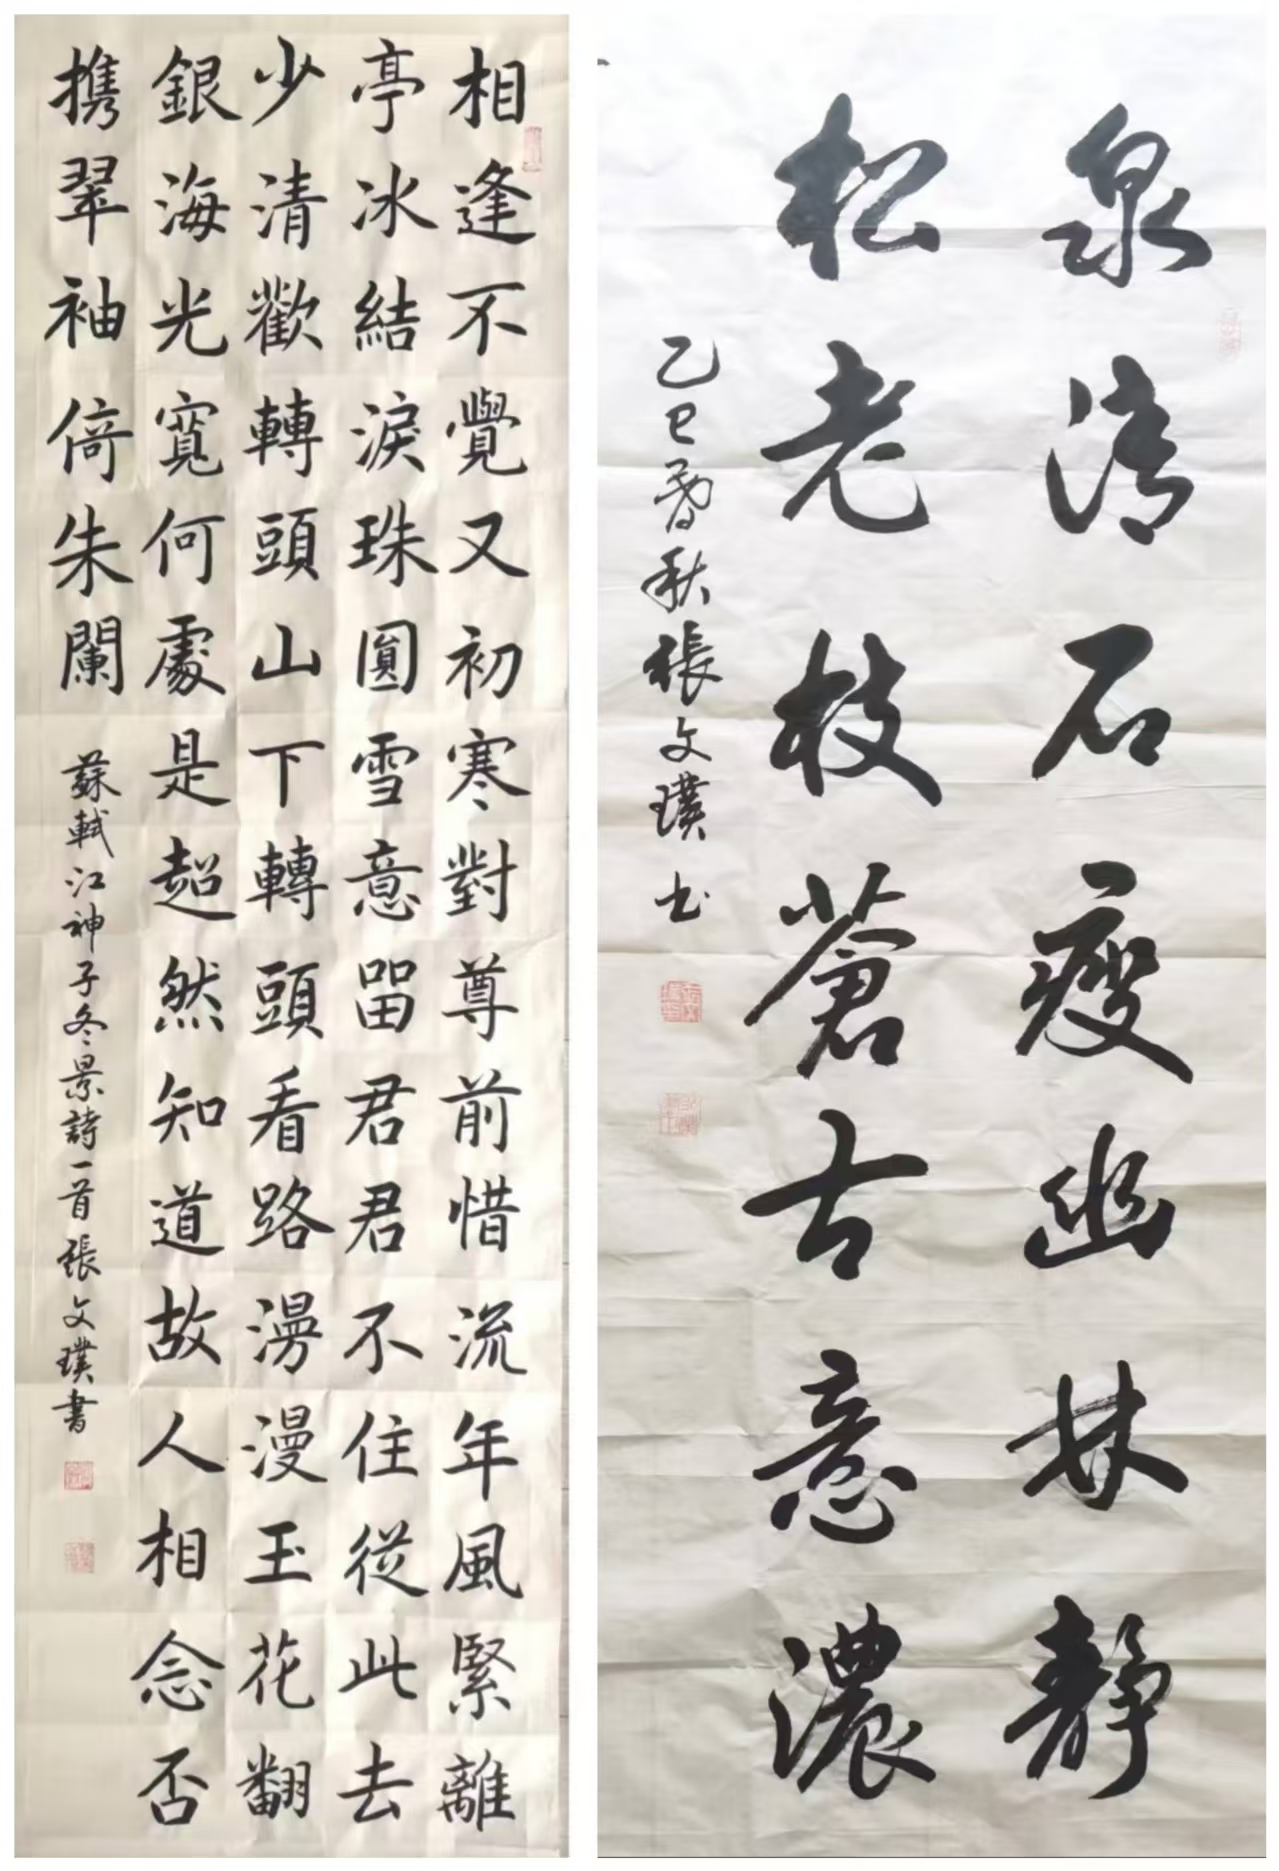 相逢不覺又初寒對尊前惜流年風緊離
亭冰結淚珠圓雪意留君君不住從此去
少清歡轉頭山下轉頭看路漫漫玉花翻
銀海光寬何處是超然知道故人相念否
携翠袖倚朱闌
蘇軾江神子冬景詩一首張文璞書
泉清石瘦幽林靜
松老枝蒼古意濃
乙巳暮秋張文璞书